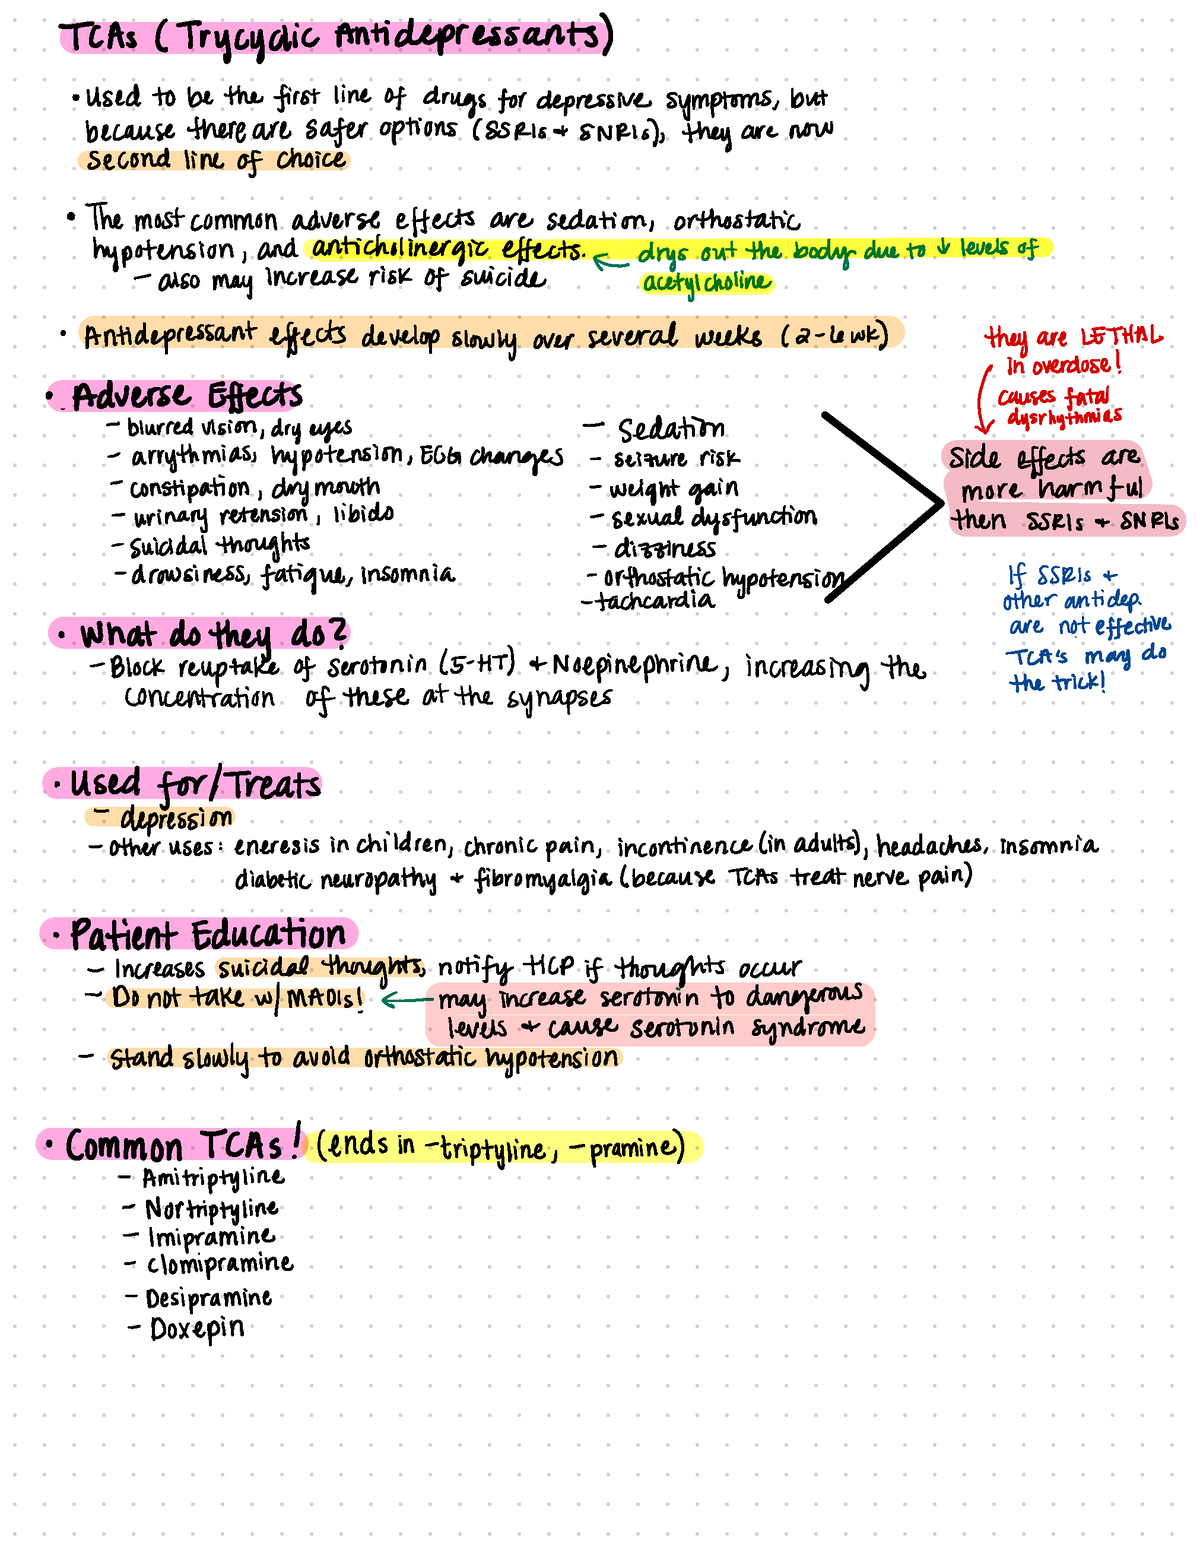 TCAs (Trycyclic Antidepressants)
• Used to be the first line of drugs for depressive symptoms, but
because there are safer options (SSRIs + SNRIs), they are now
second line of choice
• The most common adverse effects are sedation, orthostatic
hypotension, and anticholinergic effects. ← drys out the body due to ↓ levels of
acetylcholine
- also may increase risk of suicide
• Antidepressant effects develop slowly over several weeks (2-6 wk)
• Adverse Effects
- blurred vision, dry eyes
- arrythmias, hypotension, ECG changes
- constipation, dry mouth
- urinary retension, libido
- suicidal thoughts
- drowsiness, fatigue, insomnia
- Sedation
- seizure risk
- weight gain
- sexual dysfunction
- dizziness
- orthostatic hypotension
- tachcardia
they are LETHAL
in overdose!
causes fatal
dysrhythmias
Side effects are
more harmful
then SSRIs + SNRIs
If SSRIs +
other antidep.
are not effective
TCA's may do
the trick!
• What do they do?
- Block reuptake of serotonin (5-HT) + Noepinephrine, increasing the
concentration of these at the synapses
• Used for/Treats
- depression
- other uses: eneresis in children, chronic pain, incontinence (in adults), headaches, insomnia
diabetic neuropathy + fibromyalgia (because TCAs treat nerve pain)
• Patient Education
- Increases suicidal thoughts, notify HCP if thoughts occur
- Do not take w/ MAOIs! ← may increase serotonin to dangerous
levels + cause serotonin syndrome
- stand slowly to avoid orthostatic hypotension
• Common TCAs! (ends in -triptyline, -pramine)
- Amitriptyline
- Nortriptyline
- Imipramine
- clomipramine
- Desipramine
- Doxepin